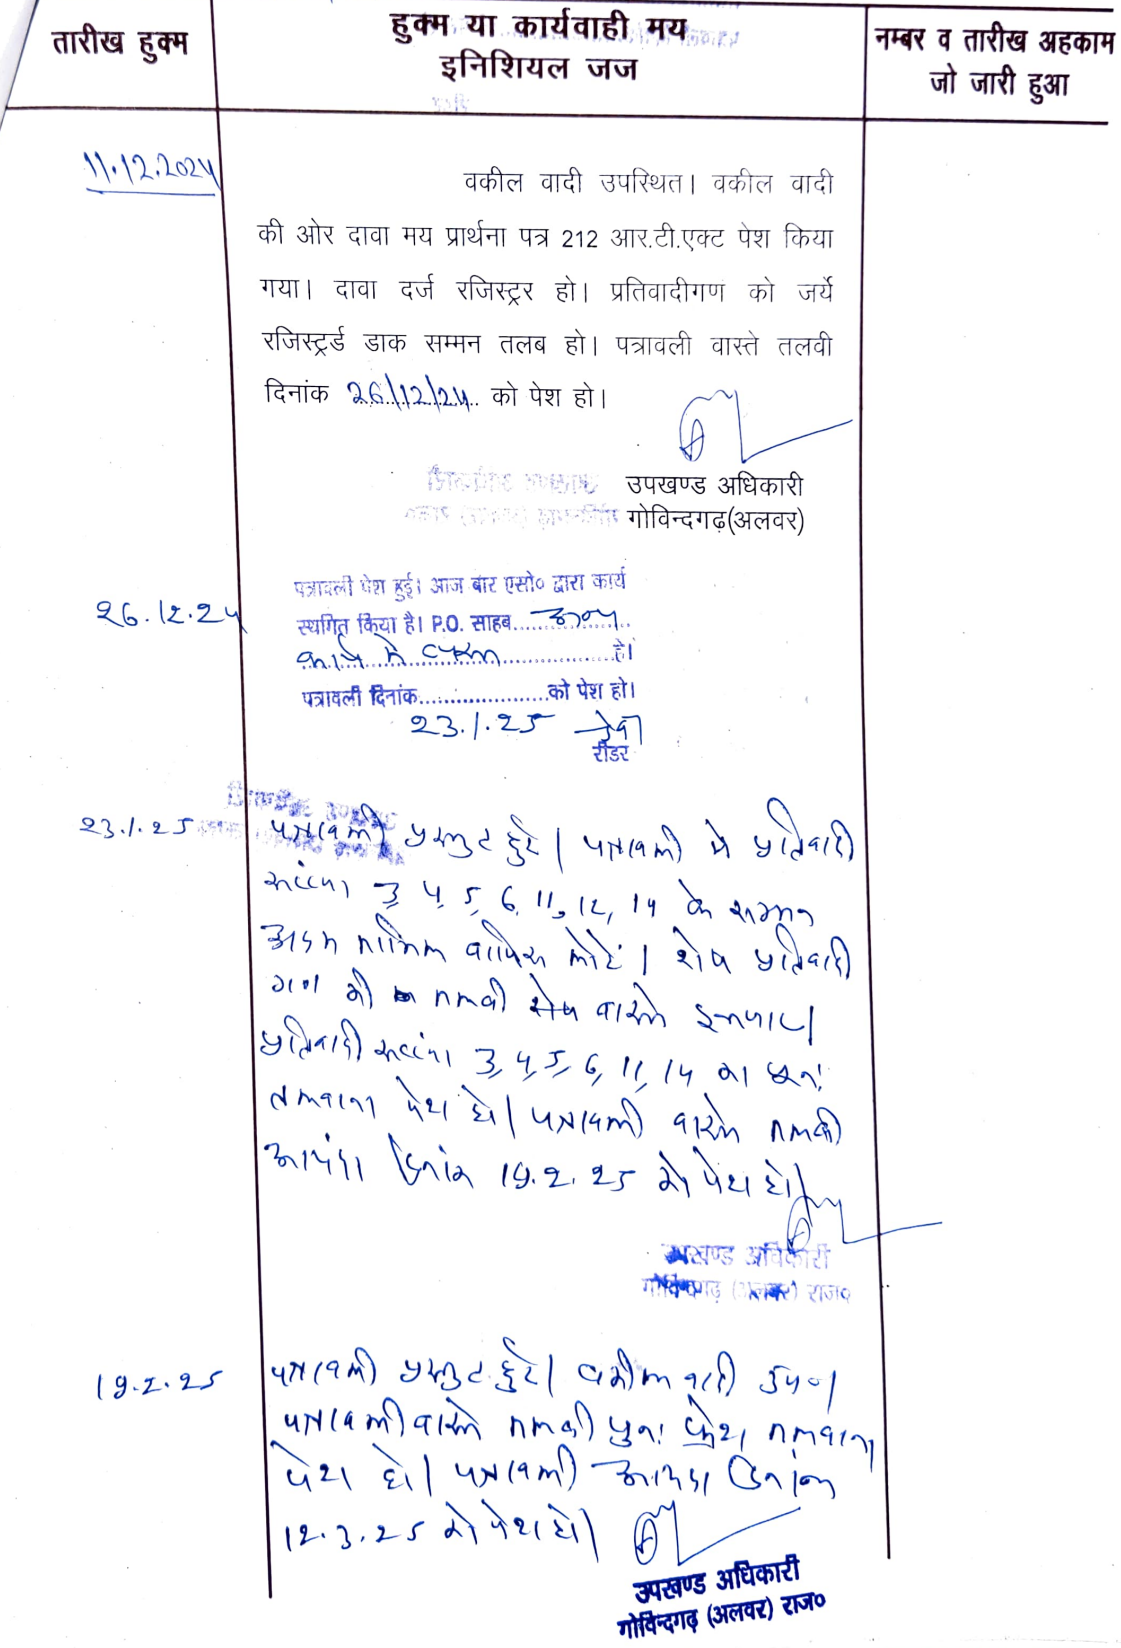 तारीख हुक्म
हुक्म या कार्यवाही मय
इनिशियल जज
नम्बर व तारीख अहकाम
जो जारी हुआ
11.12.2024
वकील वादी उपस्थित। वकील वादी
की ओर दावा मय प्रार्थना पत्र 212 आर.टी.एक्ट पेश किया
गया। दावा दर्ज रजिस्ट्रर हो। प्रतिवादीगण को जर्ये
रजिस्ट्रर्ड डाक सम्मन तलब हो। पत्रावली वास्ते तलवी
दिनांक 26/12/24 को पेश हो।
उपखण्ड अधिकारी
गोविन्दगढ़(अलवर)
26.12.24
पत्रावली पेश हुई। आज बार एसो० द्वारा कार्य
स्थगित किया है। P.O. साहब अन्य
कार्य में व्यस्त है।
पत्रावली दिनांक को पेश हो।
23.1.25
रीडर
23.1.25
पत्रावली प्रस्तुत हुई। पत्रावली मे प्रतिवादी
संख्या 3, 4, 5, 6, 11, 12, 14 के सम्मन
अदम तामिल वापिस लोटें। शेष प्रतिवादी
गण की तलवी वास्ते इन्तजार।
प्रतिवादी संख्या 3, 4, 5, 6, 11, 14 का पुनः
तलवाना पेश हो। पत्रावली वास्ते तलवी
आयंदा दिनांक 19.2.25 को पेश हो।
उपखण्ड अधिकारी
गोविन्दगढ़ (अलवर) राज०
19.2.25
पत्रावली प्रस्तुत हुई। वकील वादी उप०।
पत्रावली वास्ते तलवी पुनः फ्रेश तलवाना
पेश हो। पत्रावली आयंदा दिनांक
12.3.25 को पेश हो।
उपखण्ड अधिकारी
गोविन्दगढ़ (अलवर) राज०